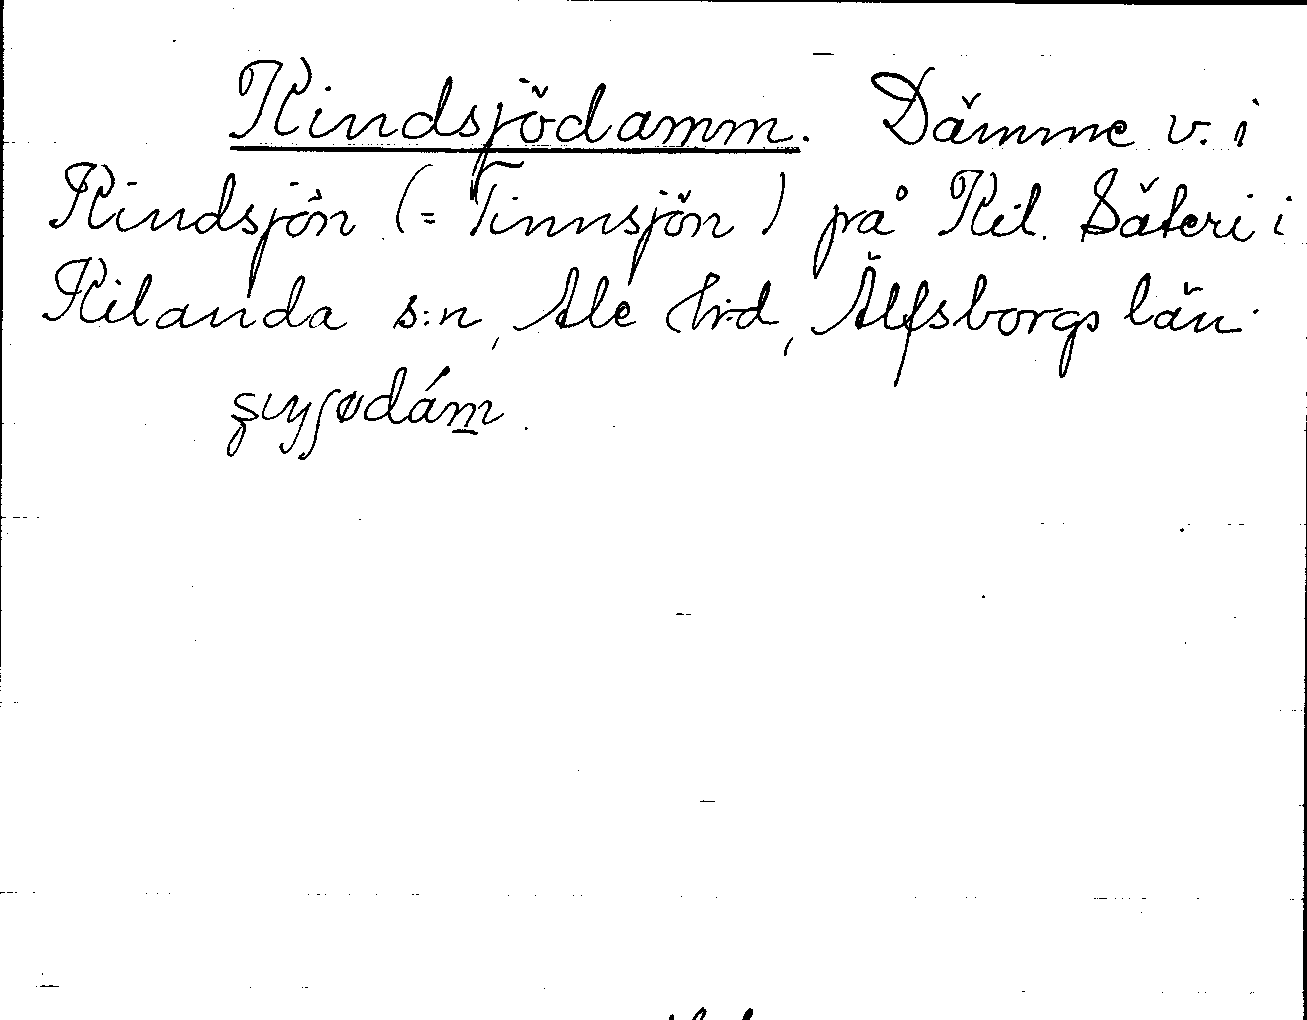 Kindsjödamm. Dämme v. i
Kindsjön (= Tinnsjön) på Kil. Säteri i
Kilanda s:n, Ale h:d, Älfsborgs län.